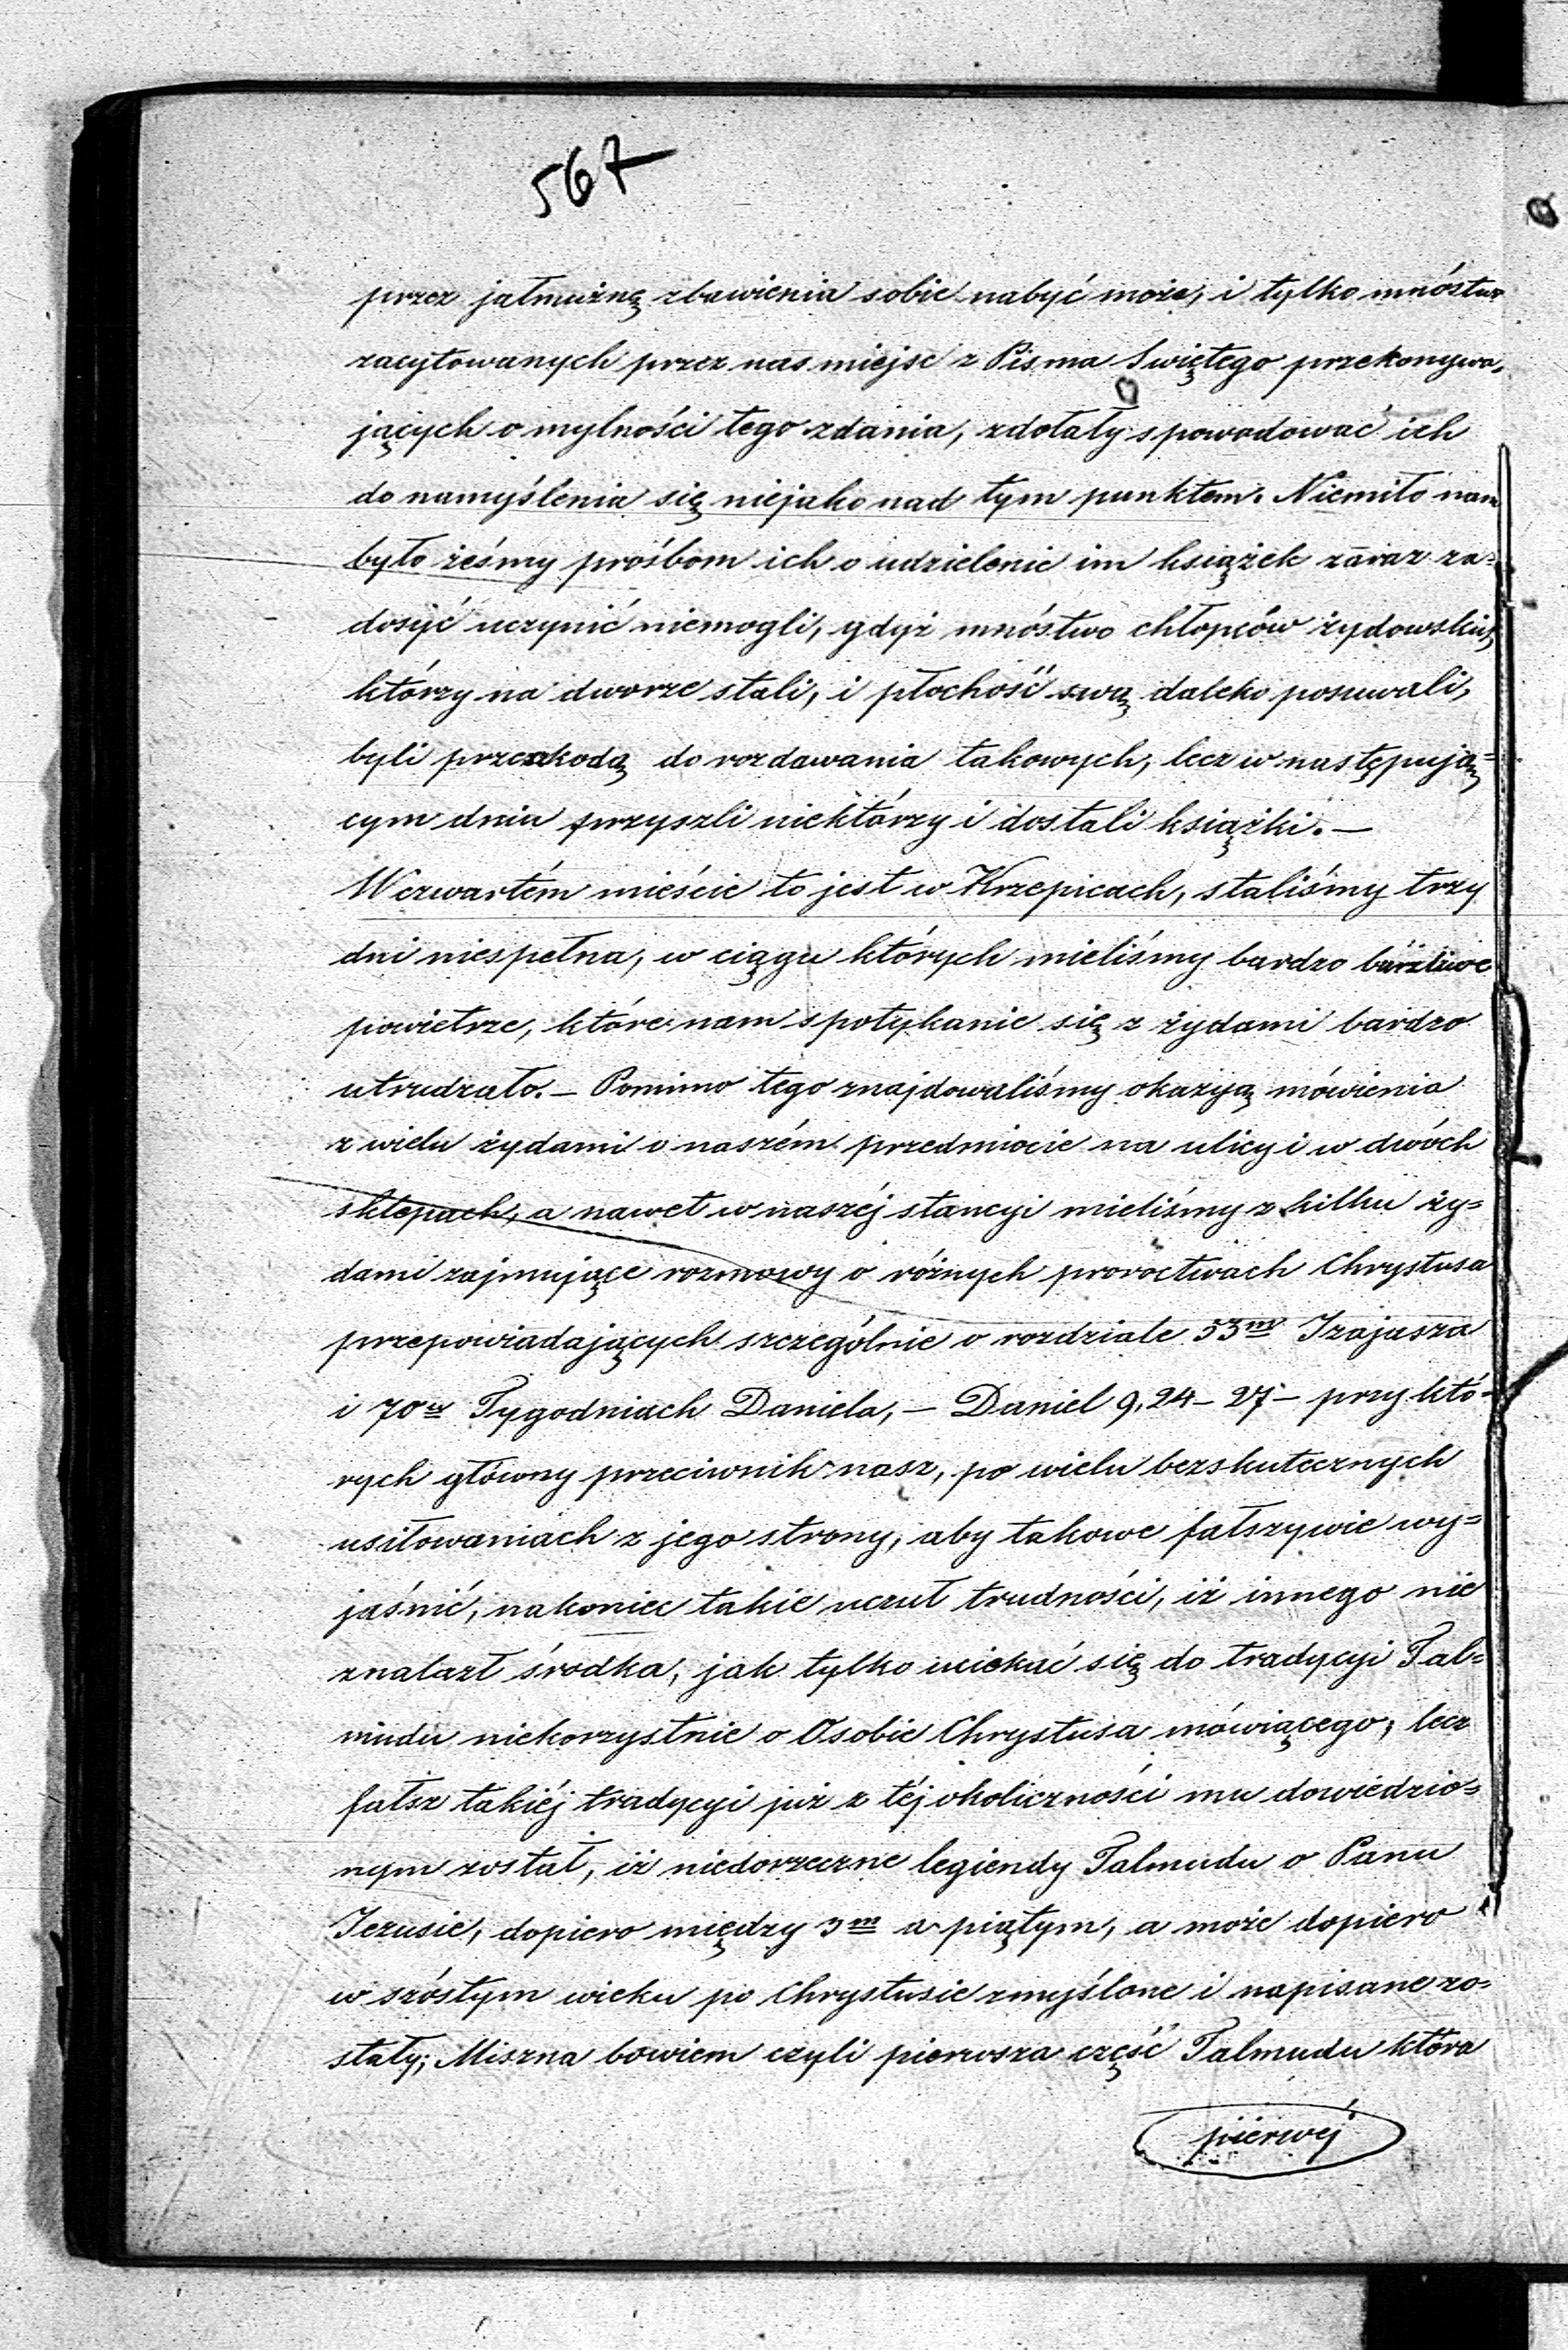 567
przez jałmużnę zbawienia sobie nabyć może, i tylko mnóstwo
zacytowanych przez nas miejsc z Pisma Swiętego przekonywa-
jących o mylności tego zdania, zdołały spowodować ich
do namyślenia się niejako nad tym punktem. Niemiło nam
było żeśmy prośbom ich o udzielenie im książek zaraz za-
dosyć uczynić niemogli, gdyż mnóstwo chłopców żydowskich,
którzy na dworze stali, i płochość swą daleko posuwali,
byli przeszkodą do rozdawania takowych, lecz w następują=
cym dniu przyszli niektórzy i dostali książki. —
W czwartém mieście to jest w Krzepicach, staliśmy trzy
dni niespełna, w ciągu których mieliśmy bardzo burzliwe
powietrze, które nam spotykanie się z żydami bardzo
utrudzało. — Pomimo tego znajdowaliśmy okazyą mówienia
z wielu żydami o naszém przedmiocie na ulicy i w dwóch
sklepach, a nawet w naszéj stancyi mieliśmy z kilku ży=
dami zajmujące rozmowy o różnych proroctwach Chrystusa
przepowiadających szczególnie o rozdziale 53m Izajasza
i 70u Tygodniach Daniela, — Daniel 9, 24 — 27 — przy któ-
rych główny przeciwnik nasz, po wielu bezskutecznych
usiłowaniach z jego strony, aby takowe fałszywie wy=
jaśnić, nakoniec takie uczuł trudności, iż innego nie
znalazł środka, jak tylko uciekać się do tradycyi Tal=
mudu niekorzystnie o Osobie Chrystusa mówiącego; lecz
fałsz takiéj tradycyi już z téj okoliczności mu dowiedzio=
nym został, iż niedorzeczne legiendy Talmudu o Panu
Jezusie, dopiero między 3m a piątym, a może dopiero
w szóstym wieku po Chrystusie zmyślone i napisane zo-
stały; Miszna bowiem czyli pierwsza część Talmudu która
pierwéj